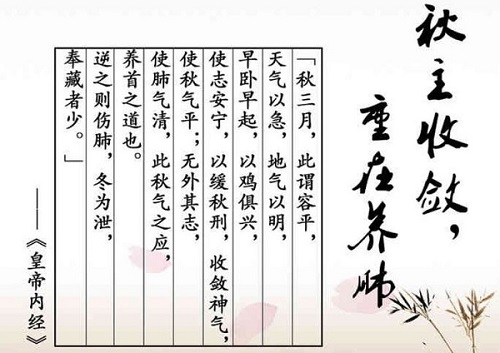 秋主收敛，
重在养肺
「秋三月，此谓容平，
天气以急，地气以明，
早卧早起，以鸡俱兴，
使志安宁，以缓秋刑，收敛神气，
使秋气平；无外其志，
使肺气清，此秋气之应，
养首之道也。
逆之则伤肺，冬为泄，
奉藏者少。」
——《皇帝内经》